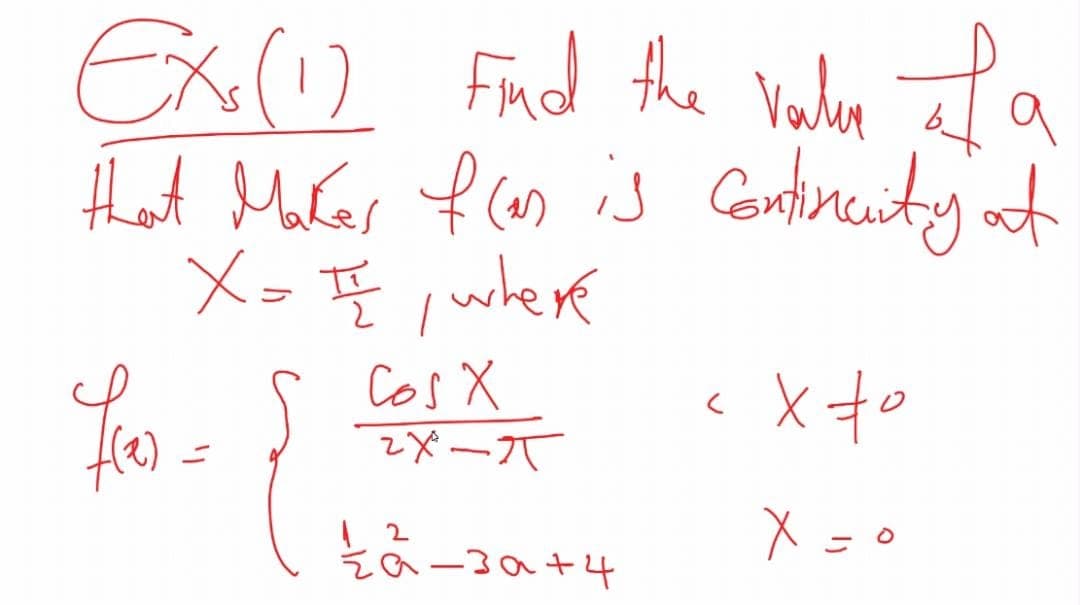 Exs(1) Find the value of a
that Makes f(x) is Continuity at
X = π/2 , where
f(x) = { cos X / 2X - π , X ≠ 0
1/2 a² - 3a + 4 X = 0